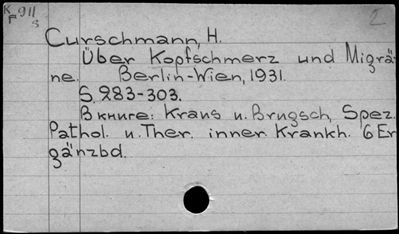 K 911
F s
2
Curschmann, H.
Über Kopfschmerz und Migrä-
ne. Berlin-Wien, 1931.
S. 283-303.
В книге: Kraus u. Brugsch, Spez.
Pathol. u. Ther. inner Krankh. 6 Er
gänzbd.